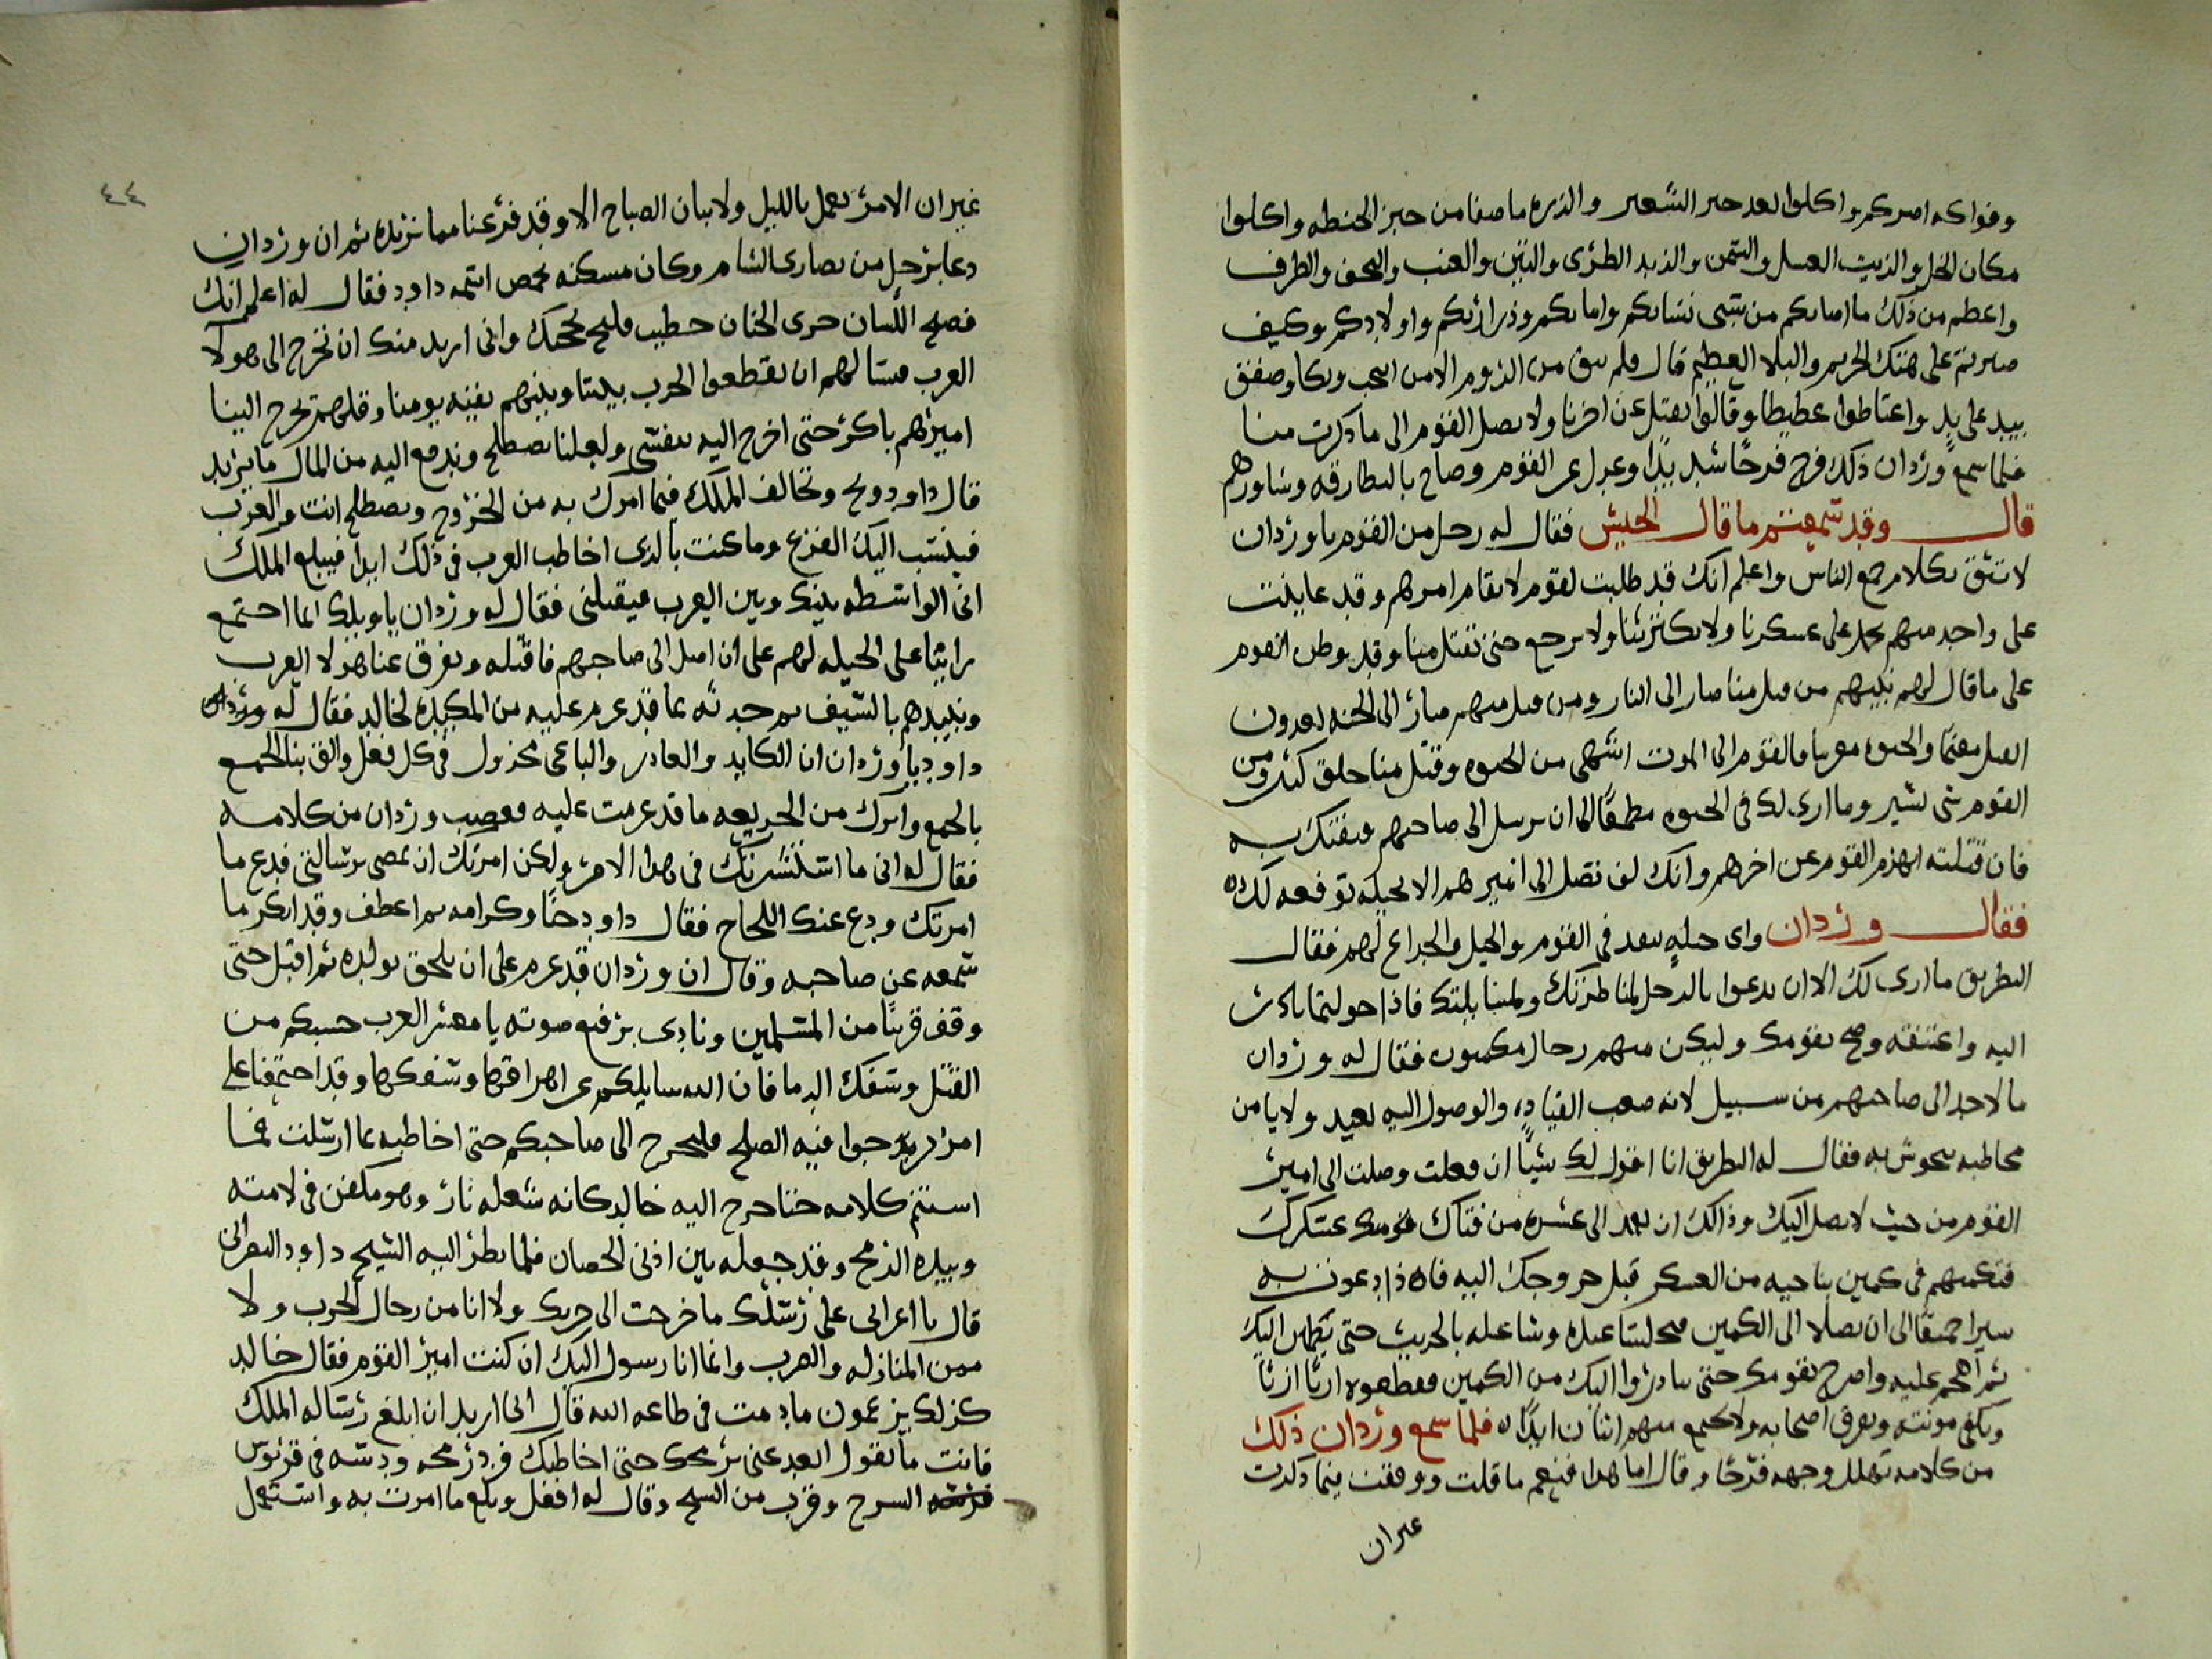 وفواكه امركم واكلوا بعد خبر الشعير والذره ما صفا من خبز الحنطه واكلوا
مكان الخل والزيت العسل والتمن والزبد الطرى والتين والعنب والتحف والطرف
واعظم من ذلك ما اصابكم من سبى نسائكم واماكم وذراريكم واولادكم وكيف
صبرتم على هتك الحريم والبلا العظيم قال فلم يبق من الروم الا من انتحب وبكا وصفق
بيد على يد واغتاظوا غطيطا وقالوا نقتل عن اخرنا ولا يصل القوم الى ما ذكرت منا
فلما سمع وردان ذلك فرح فرحًا شديدًا وعول على القوم وصاح بالبطارقه وشاورهم
قال وقد سمعتم ما قال الجيش فقال له رجل من القوم يا وردان
لا تثق بكلام جمع الناس واعلم انك قد طلبت لقوم لا يقام امرهم وقد عاينت
على واحد منهم يحمل على عسكرنا ولا يكترثنا ولا يرجع حتى يقتل منا وقد وطن القوم
على ما قال لهم نبيهم من قتل منا صار الى النار ومن قتل منهم صار الى الجنه يعدون
القتل مغنما والحيوه مغرما فالقوم الى الموت اشهى من الحيوه وقتل منا خلق كثير ومن
القوم شى يسير وما ارى لك فى الحيوه مطمعًا الا ان ترسل الى صاحبهم فتفتك به
فان قتلته انهزم القوم عن اخرهم وانك لن تصل الى اميرهم الا بحيله توقعه لك
فقال وردان واى حيله تنفد فى القوم والحيل والخداع لهم فقال
البطريق ما ارى لك الا ان تدعوا بالرجل
اليه واعتنقه وصح بقومك وليكن منهم رجال مكمنون فقال له وردان
ما لاحد الى صاحبهم من سبيل لانه صعب القياد والوصول اليه بعيد ولا يامن
مخاطبه فقال له البطريق انا اقول لك شيًا ان فعلت وصلت الى امير
القوم من حيث لا يصل اليك وذالك ان تعمد الى عشره من فتاك قومك عسكرك
فتكمنهم فى كمين بناحيه من العسكر قبل خروجك اليه فاذا دعوت به
سيرا جميعًا الى ان تصلا الى الكمين فتجلسا عنده وشاغله بالحديث حتى يطمان اليك
ثم اهجم عليه واصرخ بقومك حتى يبادروا اليك من الكمين فيقطعوه اربًا اربًا
وتكفى مونته ويفرق اصحابه ولا يجتمع منهم اثنان ابدًا فلما سمع وردان ذلك
من كلامه تهلل وجهه فرحًا وقال اما هذا فنعم ما قلت ووفقت فيما ذكرت
غيران
٤٤
غير ان الامر يعمل بالليل ولا يبان الصباح الا وقد فرغنا مما نريده ثم ان وردان
دعا برجل من نصارى الشام وكان مسكنه بحمص اسمه داود فقال له اعلم انك
فصيح اللسان جرى الجنان خطيب فليح بحجتك وانى اريد منك ان تخرج الى هولا
العرب فتسالهم ان يقطعوا الحرب بيننا وبينهم بقيه يومنا وقل لهم يخرج الينا
اميرهم باكر حتى اخرج اليه بنفسى ولعلنا نصطلح وندفع اليه من المال ما يريد
قال داود ويح وتخالف الملك فيما امرك به من الخروج وتصطلح انت والعرب
فينسب اليك الفزع وما كنت بالذى اخاطب العرب فى ذلك ابدا فيبلغ الملك
انى الواسطه بينك وبين العرب فيقتلنى فقال له وردان يا ويلك انما اجتمع
راينا على الحيله لهم على ان اصل الى صاحبهم فاقتله ويفرق عنا هولا العرب
ونبيدهم بالسيف ثم حدثه بما قد عزم عليه من المكيده لخالد فقال له
داود يا وردان ان الكايد والغادر والباغى مخذول فى كل فعل والق بنا الجمع
بالجمع واترك من الخديعه ما قد عزمت عليه فغضب وردان من كلامه
فقال له انى ما استشرتك فى هذا الامر ولكن امرتك ان تمضى برسالتى فدع ما
امرتك ودع عنك اللجاج فقال داود حبًا وكرامه ثم اعطف وقد انكر ما
سمعه عن صاحبه وقال ان وردان قد عزم على ان يلحق بولده ثم اقبل حتى
وقف قريبًا من المسلمين ونادى برفيع صوته يا معشر العرب حسبكم من
القتل وسفك الدما فان الله سايلكم عن اهراقها وسفكها وقد اجتمعنا على
امر نرجوا فيه الصلح فليخرج الى صاحبكم حتى اخاطبه بما ارسلت فما
استتم كلامه حتا خرج اليه خالد كانه شعله نار وهو مكفن فى لامته
وبيده الرمح وقد جعله بين اذنى الحصان فلما نظر اليه الشيخ داود النصرانى
قال يا اعرابى على رسلك ما خرجت الى حربك ولا انا من رجال الحرب ولا
ممن المنازله والضرب وانما انا رسول اليك ان كنت امير القوم فقال خالد
كذلك يزعمون ما دمت فى طاعه الله قال انى اريد ان ابلغ رساله الملك
فانت ما تقول ابعد عنى برمحك حتى اخاطبك فرد رمحه ودسه فى قربوس
السرج وقرب من الشيخ وقال له افعل وبلغ ما امرت به واستعمل